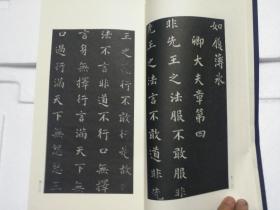 如履薄冰
卿大夫章第四
非先王之法服不敢服非
先王之法言不敢道非先
王之德行不敢行是故非
法不言非道不行口無擇
言身無擇行言滿天下無
口過行滿天下無怨惡三